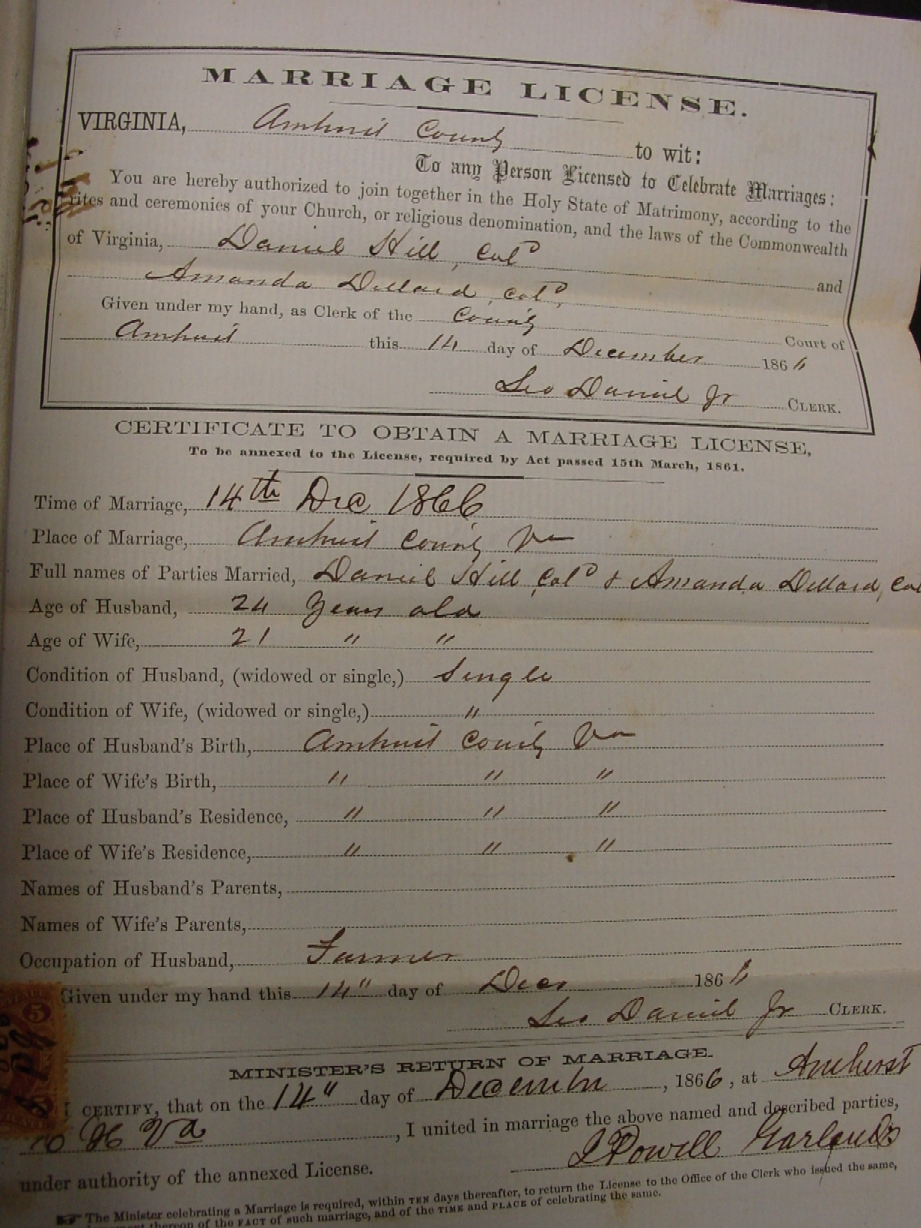 MARRIAGE LICENSE.
VIRGINIA, Amherst County to wit:
To any Person Licensed to Celebrate Marriages:
You are hereby authorized to join together in the Holy State of Matrimony, according to the
rites and ceremonies of your Church, or religious denomination, and the laws of the Commonwealth
of Virginia, Daniel Hill, Cold and
Amanda Dillard, Cold,
Given under my hand, as Clerk of the County Court of
Amherst this 14 day of December 1866
Leo Daniel Jr CLERK.
CERTIFICATE TO OBTAIN A MARRIAGE LICENSE,
To be annexed to the License, required by Act passed 15th March, 1861.
Time of Marriage, 14th Dec 1866
Place of Marriage, Amherst County Va
Full names of Parties Married, Daniel Hill, Cold & Amanda Dillard, Col
Age of Husband, 24 Years old
Age of Wife, 21 " "
Condition of Husband, (widowed or single,) Single
Condition of Wife, (widowed or single,) "
Place of Husband's Birth, Amherst County Va
Place of Wife's Birth, " " "
Place of Husband's Residence, " " "
Place of Wife's Residence, " " "
Names of Husband's Parents,
Names of Wife's Parents,
Occupation of Husband, Farmer
Given under my hand this 14" day of Decr 1866
Leo Daniel Jr CLERK.
MINISTER'S RETURN OF MARRIAGE.
I CERTIFY, that on the 14" day of December, 1866, at Amherst
C H Va, I united in marriage the above named and described parties,
under authority of the annexed License. J Powell Garland
The Minister celebrating a Marriage is required, within TEN days thereafter, to return the License to the Office of the Clerk who issued the same,
thereon of the FACT of such marriage, and of the TIME and PLACE of celebrating the same.